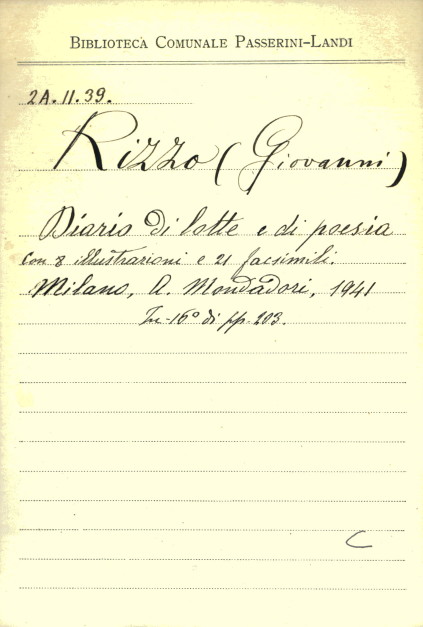 BIBLIOTECA COMUNALE PASSERINI-LANDI
2A.II.39.
Rizzo (Giovanni)
Diario di lotte e di poesia
con 8 illustrazioni e 21 facsimili.
Milano, A. Mondadori, 1941
In-16° di pp. 203.
C